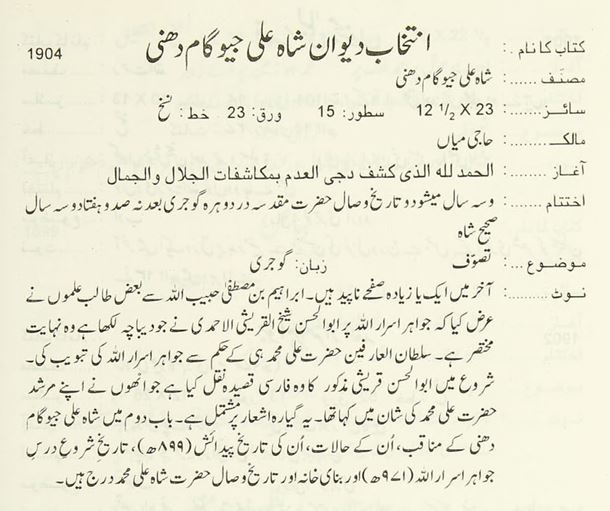 1904
انتخاب دیوان شاہ علی جیو گام دھنی
کتاب کا نام .: 
مصنّف ......: شاہ علی جیو گام دھنی
سائز........: 23 X 12 1/2 سطور: 15 ورق: 23 خط: نسخ
مالک......: حاجی میاں
آغاز.......: الحمد لله الذی کشف دجی العدم بمکاشفات الجلال والجمال
اختتام.......: وسہ سال میشود و تاریخ وصال حضرت مقدسہ در دوہرہ گوجری بعد نہ صد و ہفتاد و سہ سال
صحیح شاہ
موضوع...: تصوّف زبان: گوجری
نوٹ.........: آخر میں ایک یا زیادہ صفحے ناپید ہیں۔ ابراھیم بن مصطفیٰ حبیب اللہ سے بعض طالب علموں نے
عرض کیا کہ جواہر اسرار اللہ پر ابوالحسن شیخ القریشی الاحمدی نے جو دیباچہ لکھا ہے وہ نہایت
مختصر ہے۔ سلطان العارفین حضرت علی محمد ہی کے حکم سے جواہر اسرار اللہ کی تبویب کی۔
شروع میں ابوالحسن قریشی مذکور کا وہ فارسی قصیدہ نقل کیا ہے جو انھوں نے اپنے مرشد
حضرت علی محمد کی شان میں کہا تھا۔ یہ گیارہ اشعار پر مشتمل ہے۔ باب دوم میں شاہ علی جیو گام
دھنی کے مناقب، اُن کے حالات، اُن کی تاریخ پیدائش (۸۹۹ھ)، تاریخ شروع درسِ
جواہر اسرار اللہ (۹۷۱ھ) اور بنای خانہ اور تاریخ وصال حضرت شاہ علی محمد درج ہیں۔